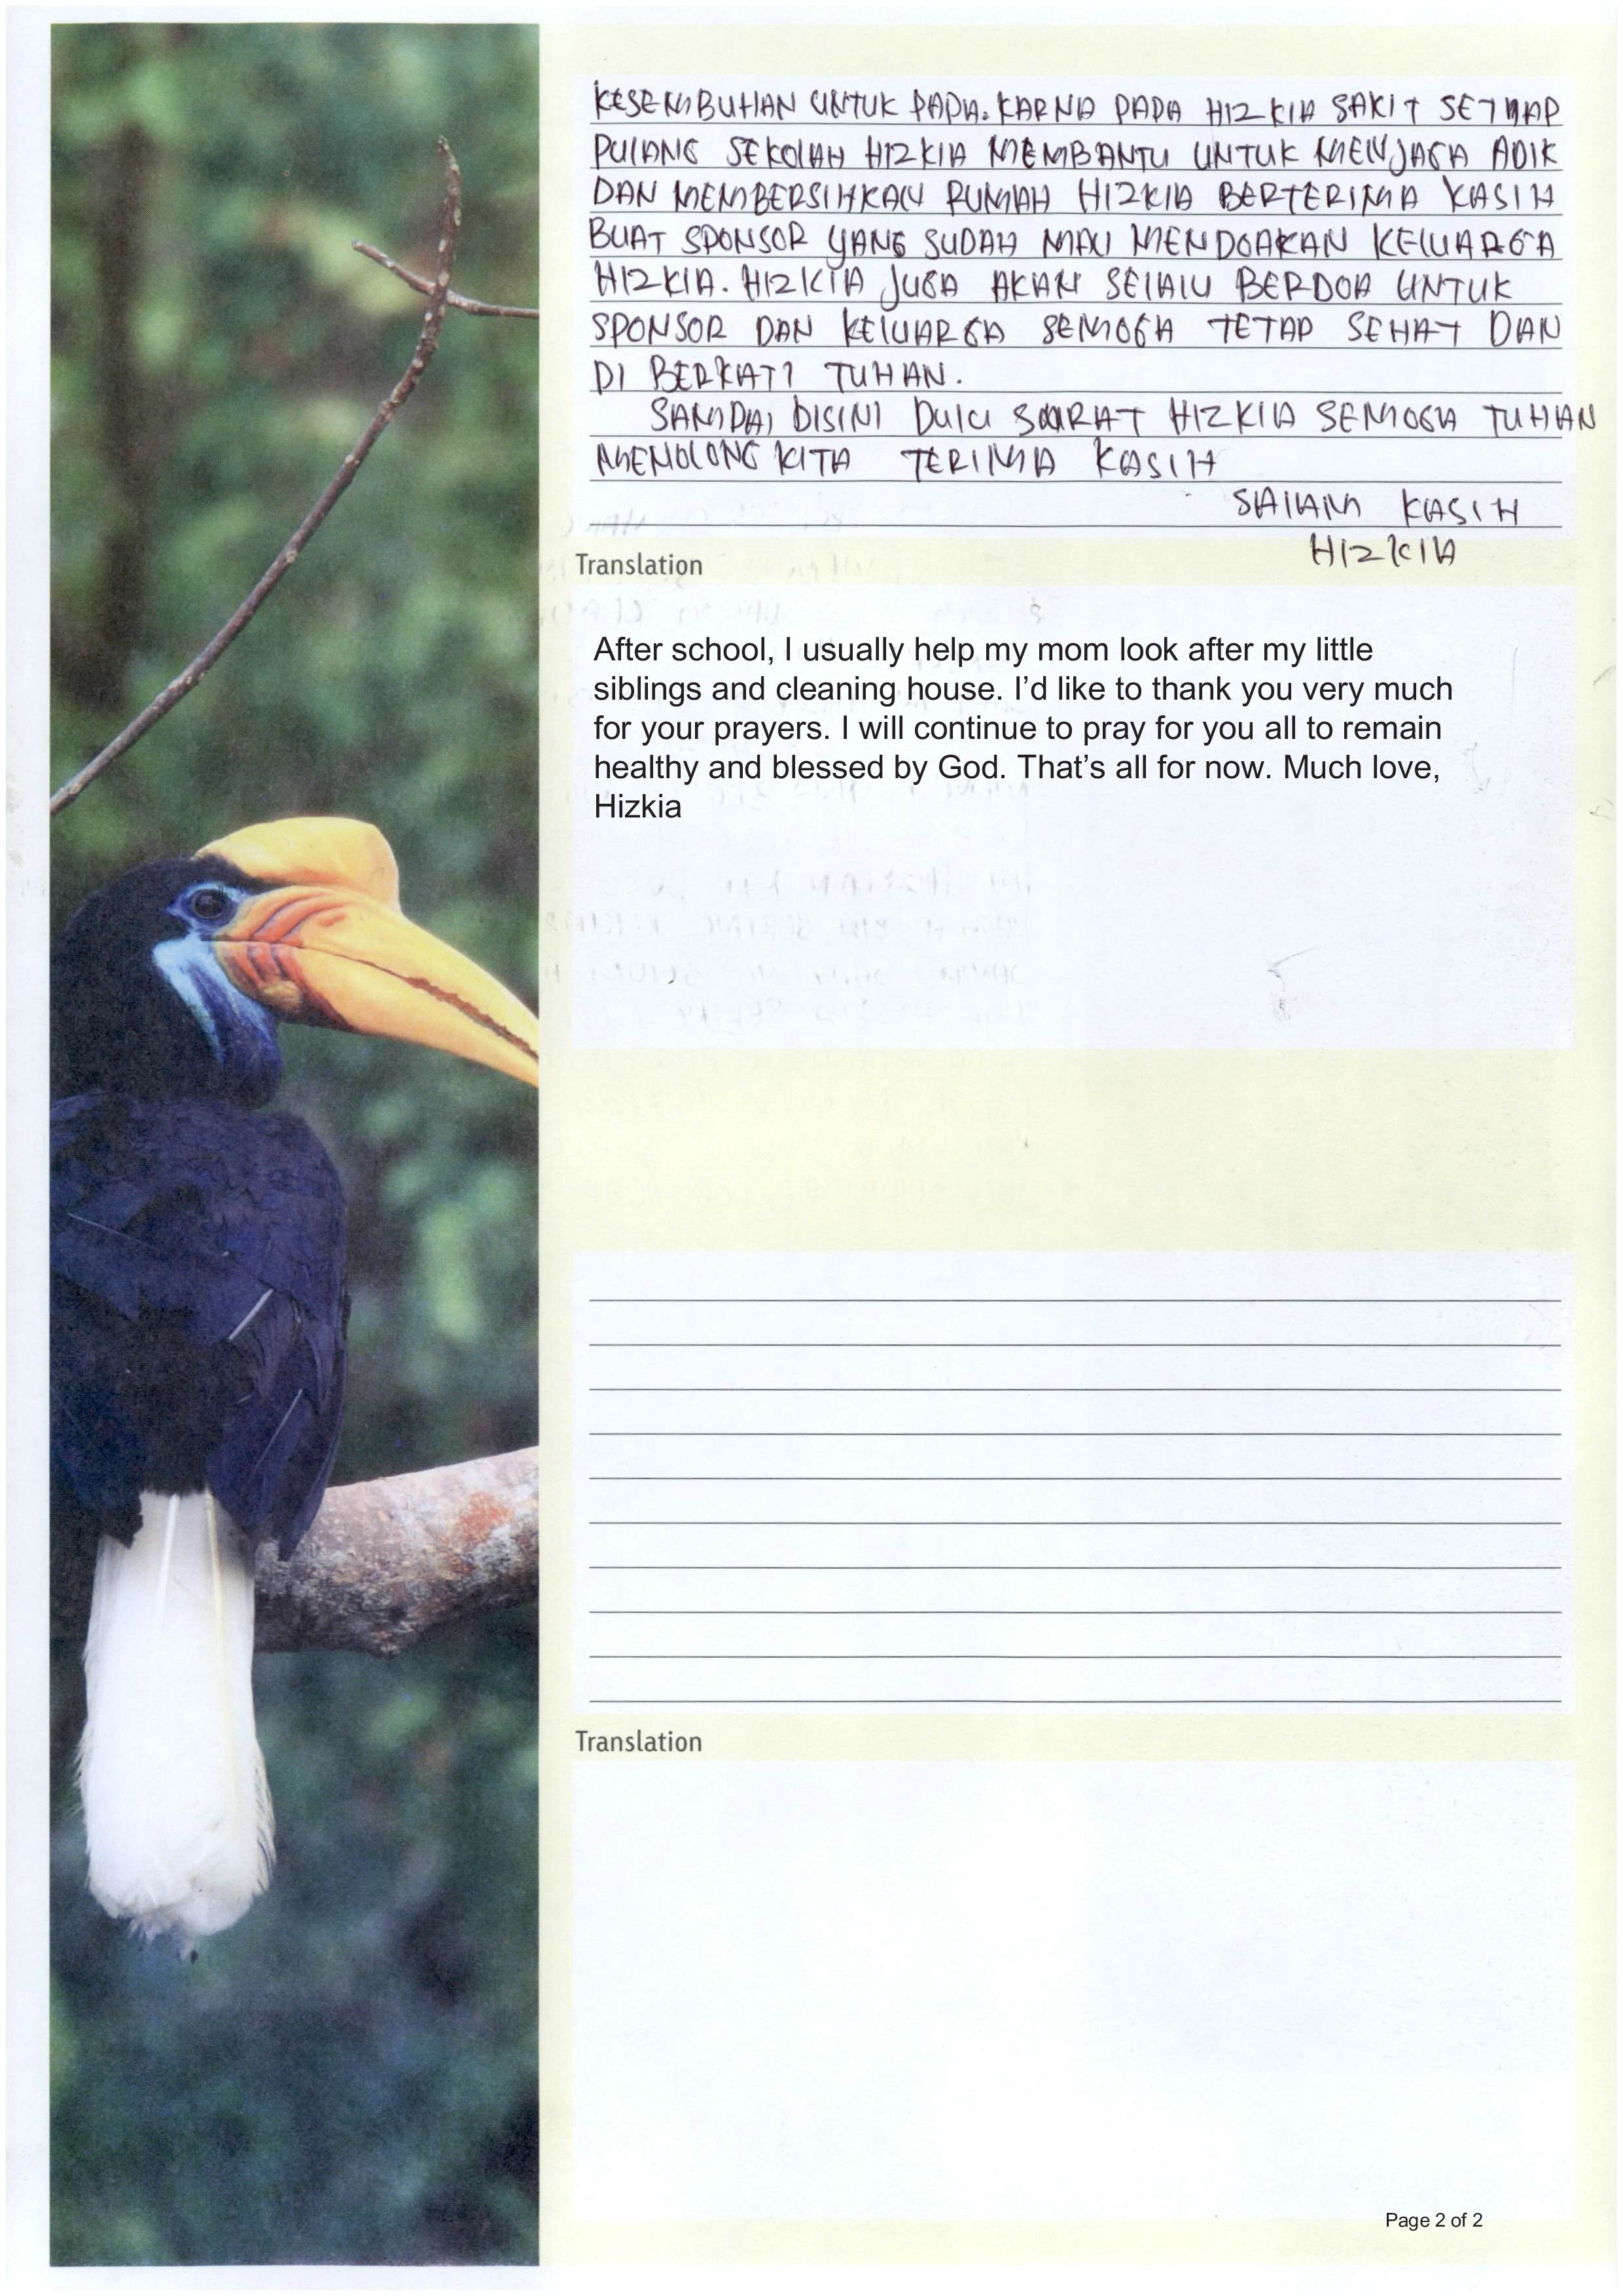 KESEMBUHAN UNTUK PAPA. KARNA PAPA HIZKIA SAKIT SETIAP
PULANG SEKOLAH HIZKIA MEMBANTU UNTUK MENJAGA ADIK
DAN MEMBERSIHKAN RUMAH HIZKIA BERTERIMA KASIH
BUAT SPONSOR YANG SUDAH MAU MENDOAKAN KELUARGA
HIZKIA. HIZKIA JUGA AKAN SELALU BERDOA UNTUK
SPONSOR DAN KELUARGA SEMOGA TETAP SEHAT DAN
DI BERKATI TUHAN.
SAMPAI DISINI DULU SURAT HIZKIA SEMOGA TUHAN
MENOLONG KITA TERIMA KASIH
SALAM KASIH
HIZKIA
Translation
After school, I usually help my mom look after my little
siblings and cleaning house. I’d like to thank you very much
for your prayers. I will continue to pray for you all to remain
healthy and blessed by God. That’s all for now. Much love,
Hizkia
Translation
Page 2 of 2